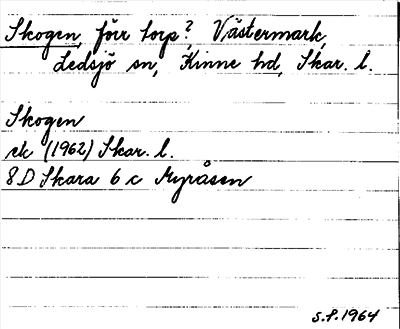 Skogen, förr torp? Västermark,
Ledsjö sn, Kinne hd, Skar. l.
Skogen
ek (1962) Skar. l.
8D Skara 6 c Myråsen
S.P. 1964